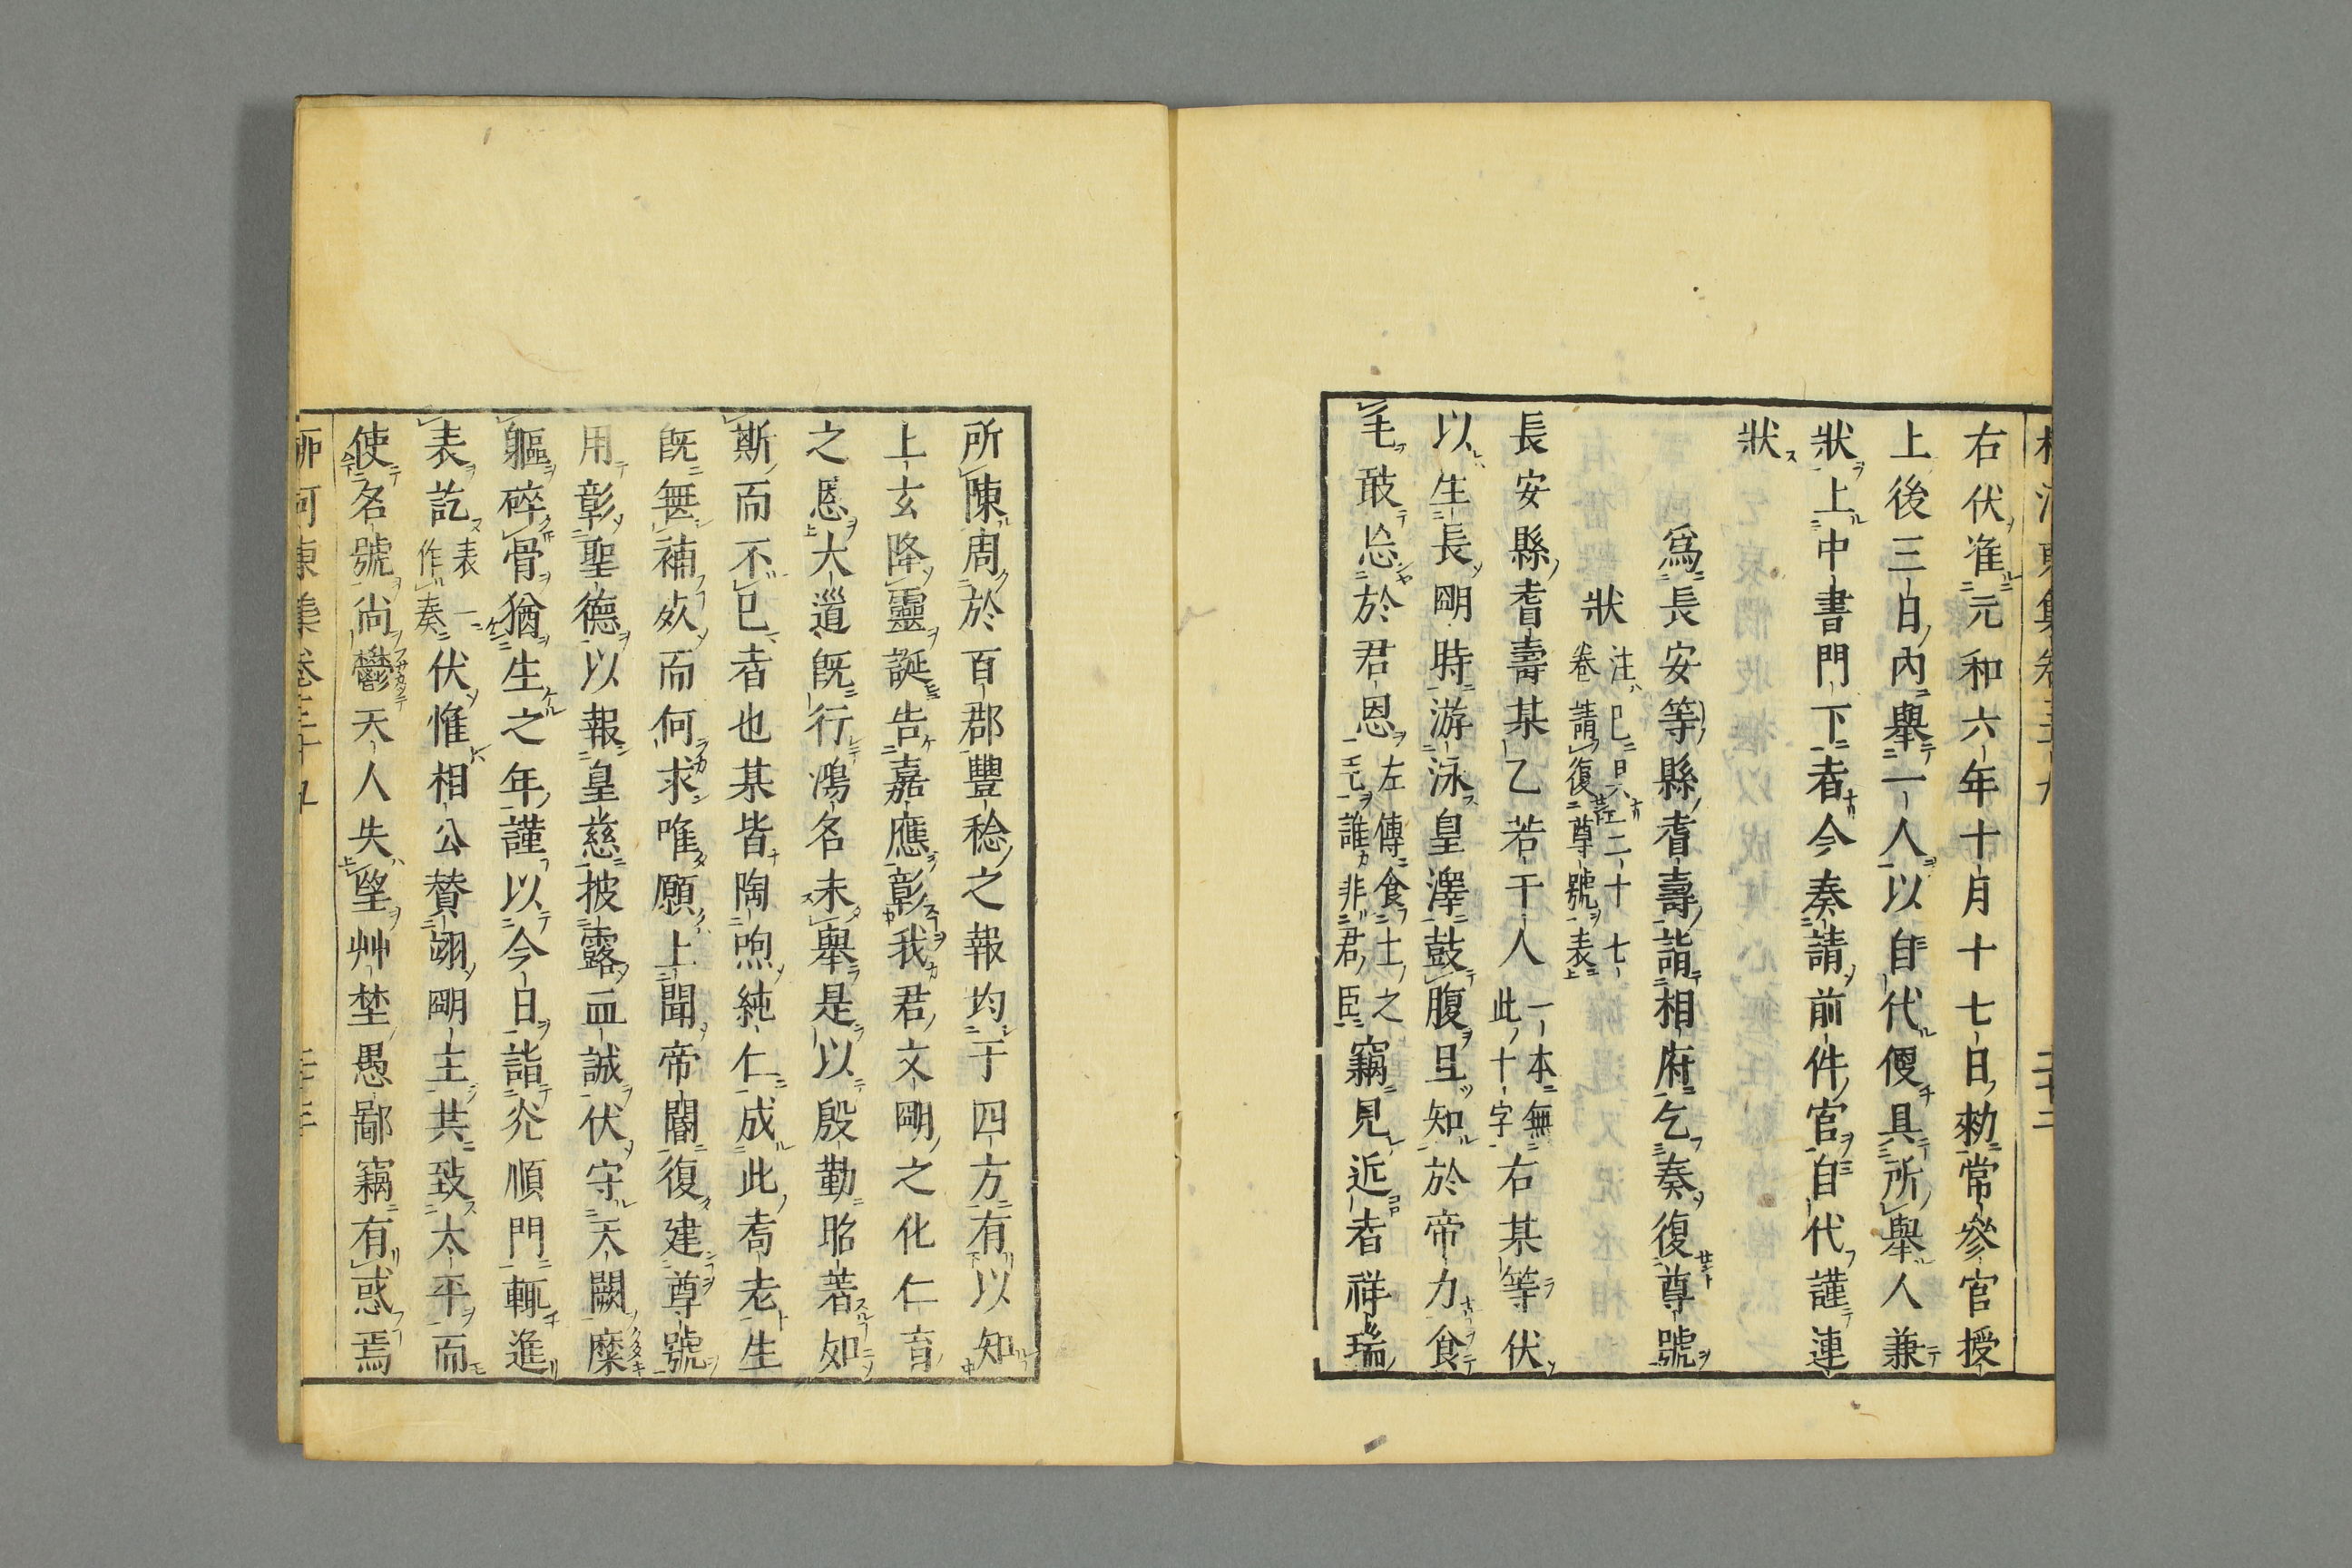 右伏准元和六年十月十七日勑常參官授
上後三日內舉一人以自代便具所舉人兼
狀上中書門下者今奏請前件官自代謹連
狀
爲長安等縣耆壽詣相府乞奏復尊號
狀 注已具二十七卷請復尊號表
長安縣耆壽某乙若干人 一本無此十字 右某等伏
以生長明時游泳皇澤鼓腹且知於帝力食
毛敢忘於君恩 左傳食土之毛誰非君臣 竊見近者祥瑞
所陳周於百郡豐稔之報均于四方有以知
上玄降靈誕告嘉應彰我君文明之化仁育
之恩大道旣行鴻名未舉是以殷勤昭著如
斯而不已者也某皆陶煦純仁成此耇老生
旣無補死而何求唯願上聞帝閽復建尊號
用彰聖德以報皇慈披露血誠伏守天闕糜
軀碎骨猶生之年謹以今日詣光順門輒進
表訖 表一作奏 伏惟相公贊翊明主共致太平而
使名號尚鬱天人失望艸埜愚鄙竊有惑焉
柳河東集卷三十九